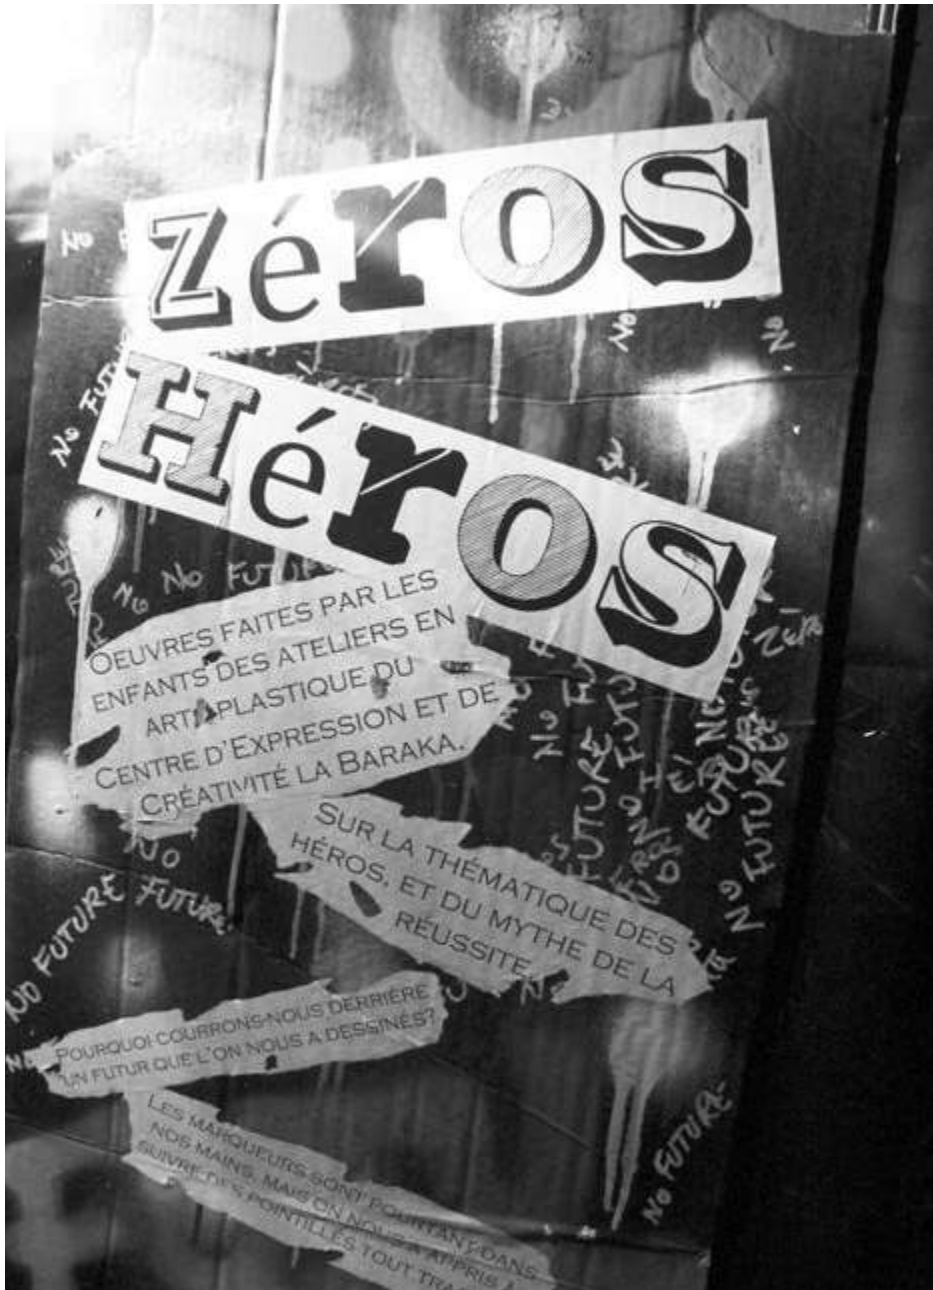 Zéros
Héros
OEUVRES FAITES PAR LES
ENFANTS DES ATELIERS EN
ART PLASTIQUE DU
CENTRE D'EXPRESSION ET DE
CRÉATIVITÉ LA BARAKA.
SUR LA THÉMATIQUE DES
HÉROS, ET DU MYTHE DE LA
RÉUSSITE
POURQUOI COURRONS-NOUS DERRIÈRE
UN FUTUR QUE L'ON NOUS A DESSINÉS?
LES MARQUEURS SONT POURTANT DANS
NOS MAINS, MAIS ON NOUS A APPRIS À
SUIVRE DES POINTILLÉS TOUT
NO FUTURE
NO NO FUTURE
NO FUTURE
NO FUTURE
FUTURE
NO FUTURE
NO FUTURE